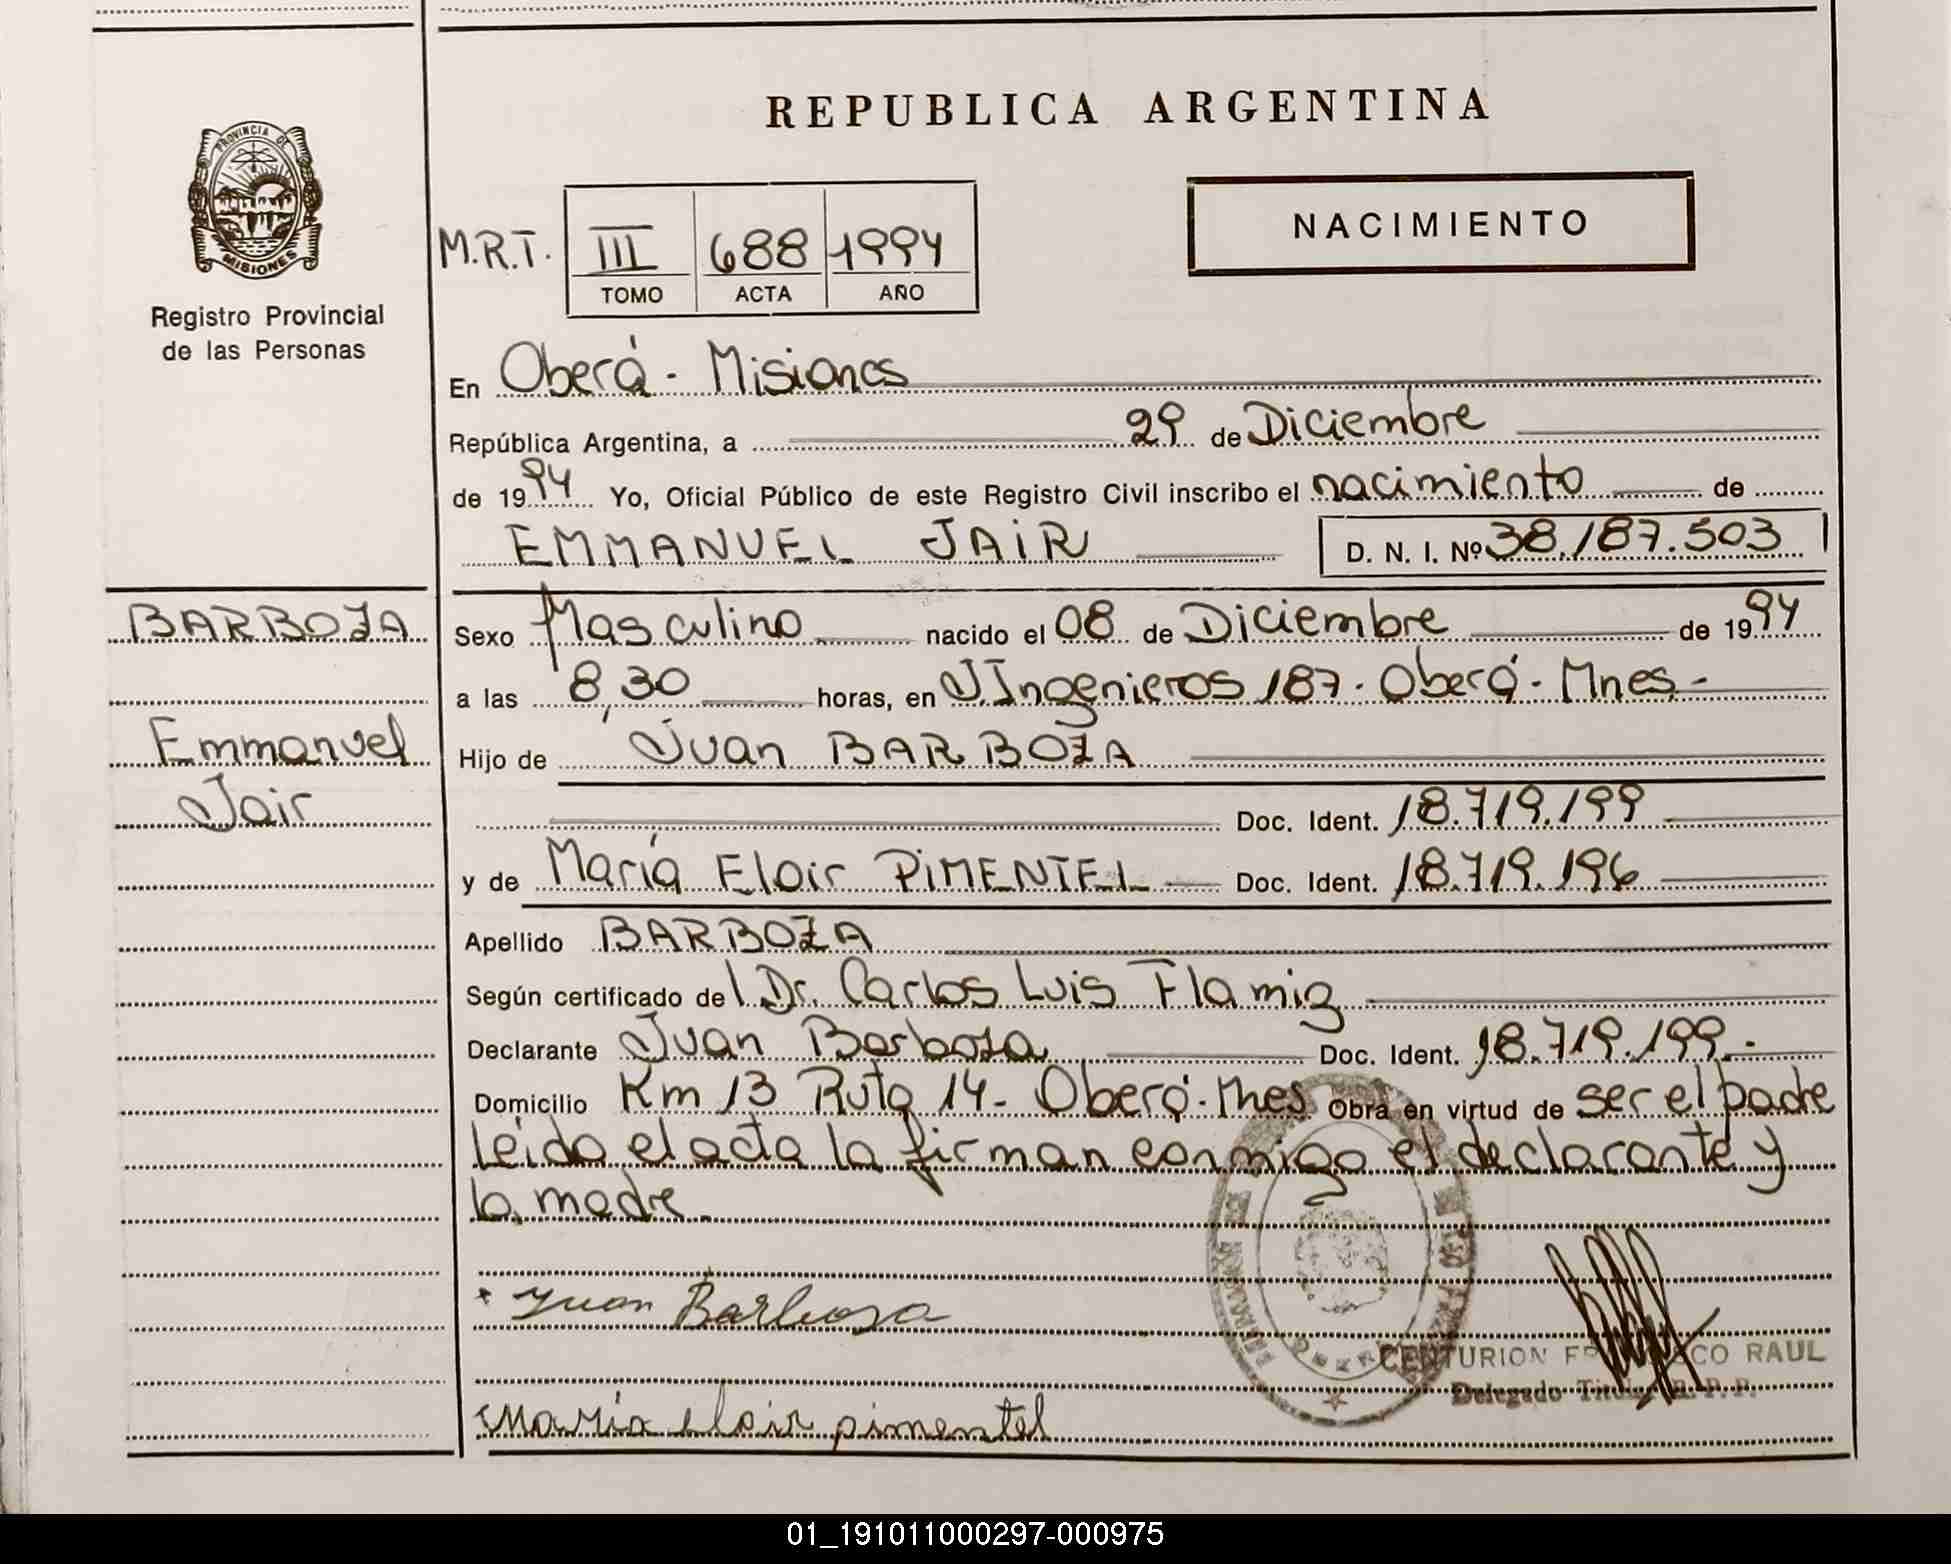 REPUBLICA ARGENTINA
PROVINCIA DE
MISIONES
Registro Provincial
de las Personas
NACIMIENTO
M.R.T. III 688 1994
TOMO ACTA AÑO
En Oberá - Misiones
República Argentina, a 29 de Diciembre
de 1994 Yo, Oficial Público de este Registro Civil inscribo el nacimiento de
EMMANUEL JAIR D. N. I. Nº 38.187.503
BARBOZA
Emmanuel
Jair
Sexo Masculino nacido el 08 de Diciembre de 1994
a las 8,30 horas, en J.Ingenieros 187. Oberá - Mnes.-
Hijo de Juan BARBOZA
Doc. Ident. 18.719.199
y de María Eloir PIMENTEL Doc. Ident. 18.719.196
Apellido BARBOZA
Según certificado del Dr. Carlos Luis Flamig
Declarante Juan Barboza Doc. Ident. 18.719.199.-
Domicilio Km 13 Ruta 14- Oberá-Mnes Obra en virtud de ser el padre
leida el acta la firman conmigo el declarante y
la madre.
Juan Barbosa
CENTURION FR SCO RAUL
Delegado Titular R.P.P.
María eloir pimentel
01_191011000297-000975